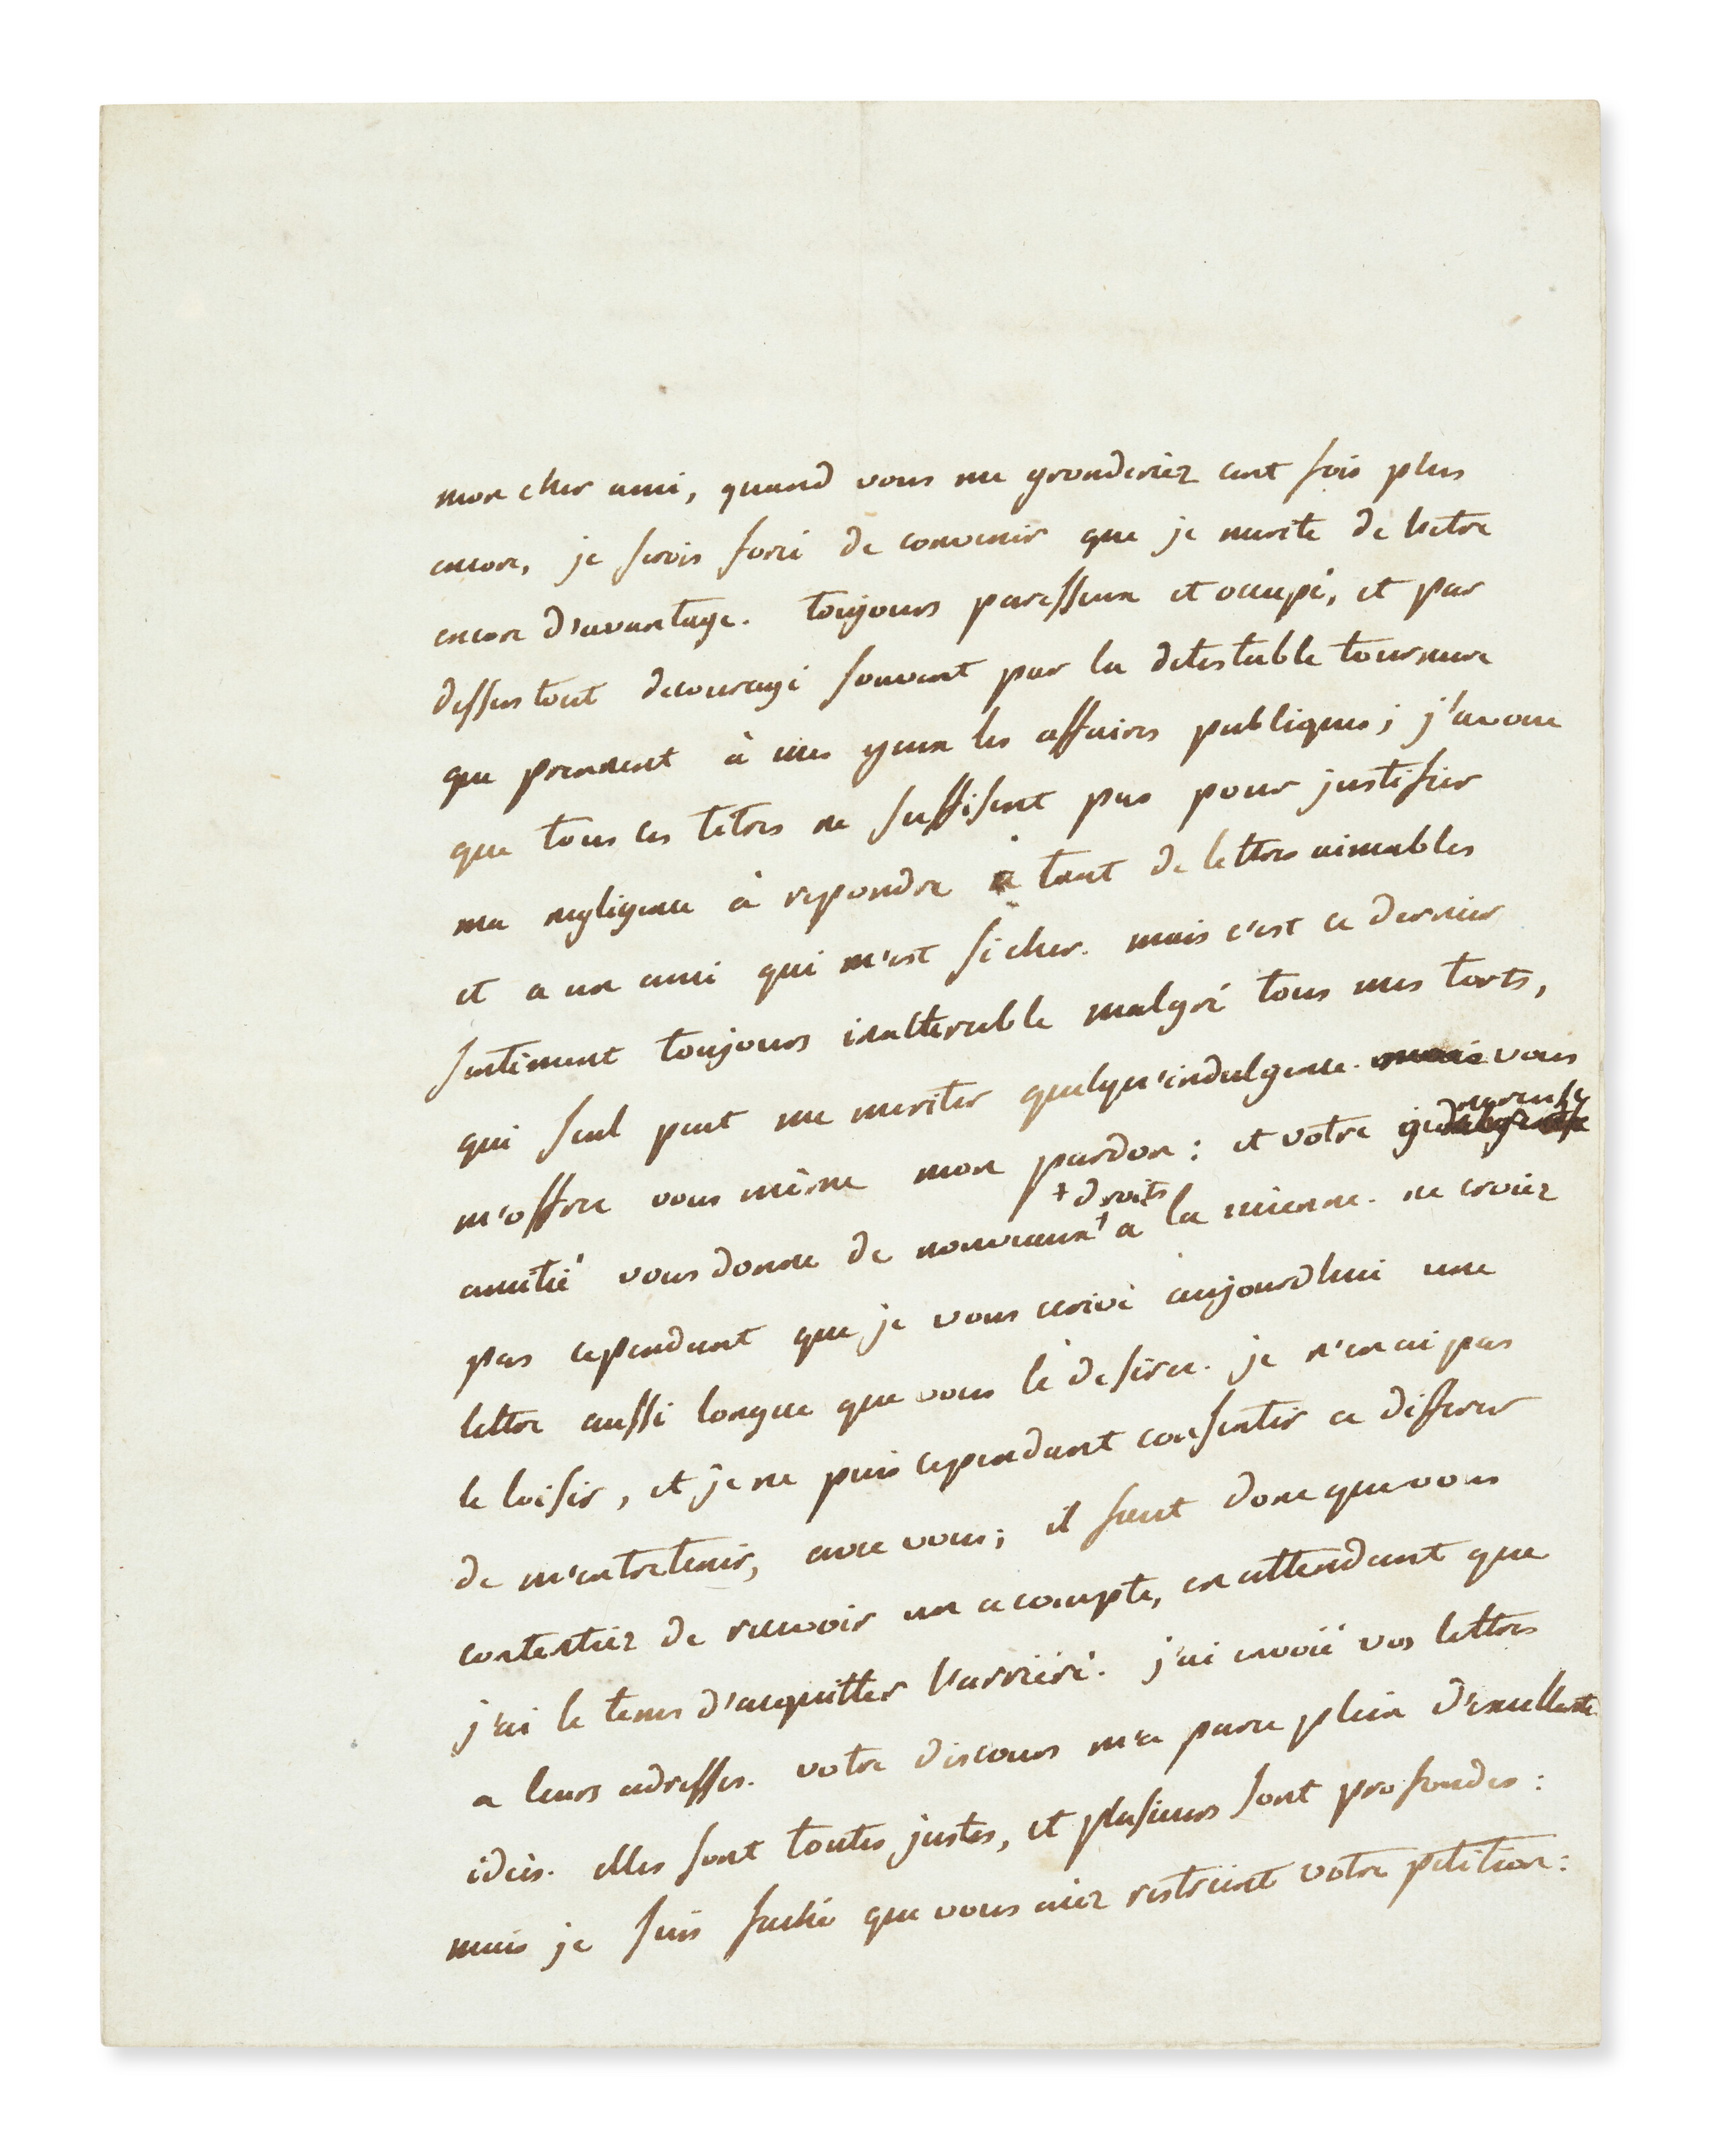 mon cher ami, quand vous me gronderiez cent fois plus
encore, je serois forcé de convenir que je merite de l'etre
encore d'avantage. toujours paresseux et occupé, et par
dessus tout decouragé souvent par la detestable tournure
que prennent à mes yeux les affaires publiques; j'avoue
que tous ces titres ne suffisent pas pour justifier
ma negligence à repondre à tant de lettres aimables
et a un ami qui m'est si cher. mais c'est ce dernier
sentiment toujours inalterable malgré tous mes torts,
qui seul peut me meriter quelqu'indulgence. vous
m'offrez vous même mon pardon: et votre genereuse
amitié vous donne de nouveaux + droits a la mienne. ne croiez
pas cependant que je vous ecrive aujourdhui une
lettre aussi longue que vous le desirez. je n'en ai pas
le loisir, et je ne puis cependant consentir a differer
de m'entretenir, avec vous; il faut donc que vous
contentiez de recevoir un acompte, en attendant que
j'ai le tems d'acquitter l'arriéré. j'ai envoié vos lettres
a leurs adresses. votre discours m'a paru plein d'excellentes
idées. elles sont toutes justes, et plusieurs sont profondes:
mais je suis faché que vous aiez restreint votre petition: